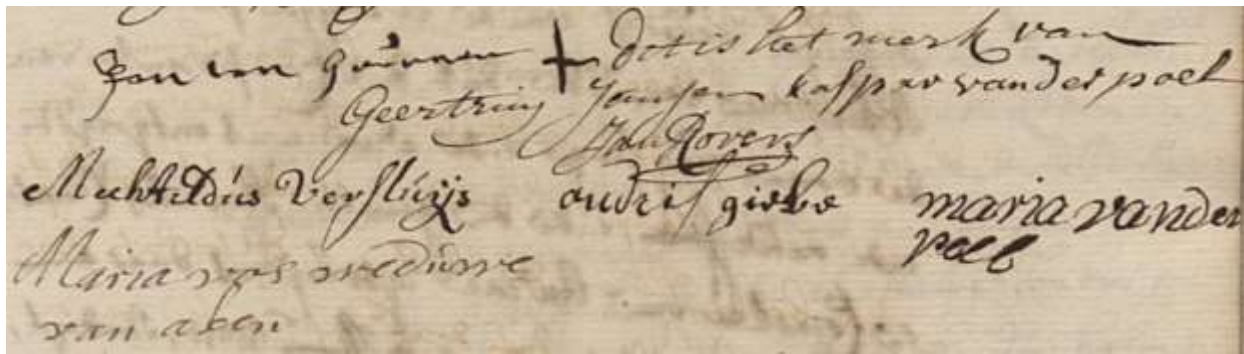 Jan van + dit is het merk van
Geertruij Jansen kasper van der poel
Jan Rovers
Mechteldus Versluijs andris giebe maria van der
poel
Maria vos weduwe
van a